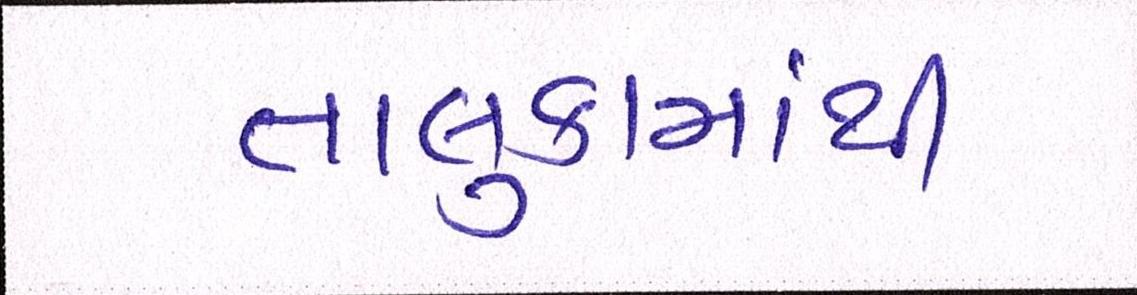 તાલુકામાંથી